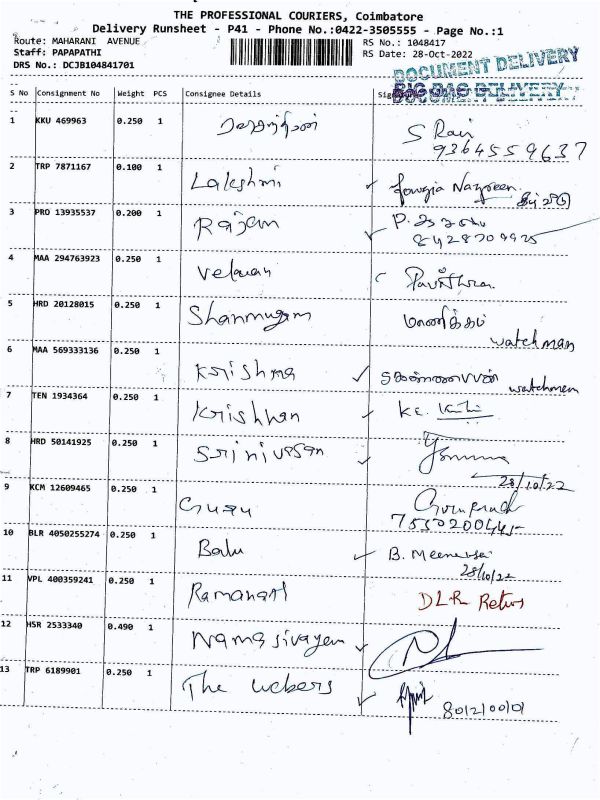 THE PROFESSIONAL COURIERS, Coimbatore
Delivery Runsheet - P41 - Phone No.:0422-3505555 - Page No.:1
Route: MAHARANI AVENUE
RS No.: 1048417
Staff: PAPAPATHI
RS Date: 28-Oct-2022
DRS No.: DCJB104841701
DOCUMENT DELIVERY
S No Consignment No Weight PCS Consignee Details
1 KKU 469963 0.250 1 S Ravi
9364559637
2 TRP 7871167 0.100 1 Lakshmi
3 PRO 13935537 0.200 1 Rajam
8428709925
4 MAA 294763923 0.250 1 Velavan Pavithra
5 HRD 20128015 0.250 1 Shanmugam மாணிக்கம்
watchman
6 MAA 569333136 0.250 1 Krishna watchman
7 TEN 1934364 0.250 1 Krishnan
8 HRD 50141925 0.250 1 Srinivasan
28/10/22
9 KCM 12609465 0.250 1 Guru Guruprasad
10 BLR 4050255274 0.250 1 Balu B.
28/10/22
11 VPL 400359241 0.250 1 DLR Return
12 HSR 2533340 0.490 1 Namasivayam
13 TRP 6189901 0.250 1 The Webers